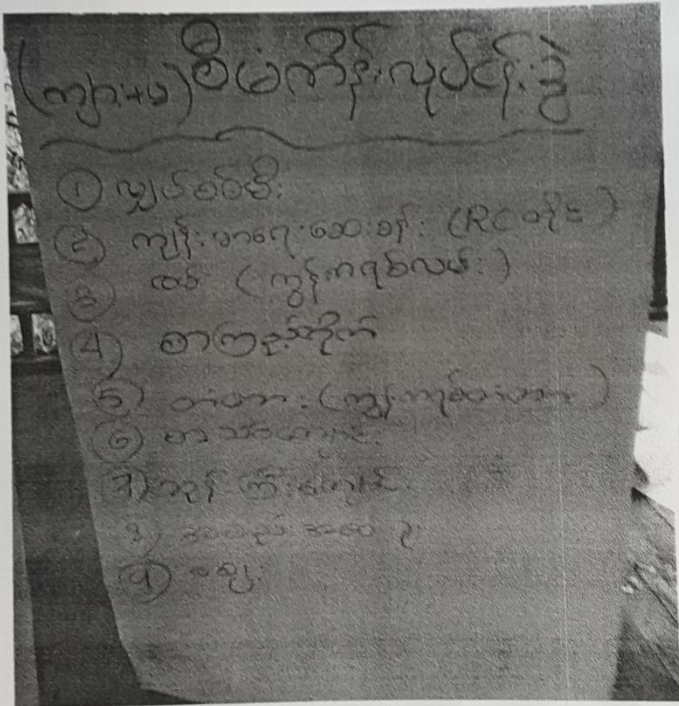 (ကျား+မ) စီမံကိန်းလုပ်ငန်းခွဲ
① လျှပ်စစ်မီး
② ကျန်းမာရေးဆေးခန်း (RC တိုင်)
③ လမ်း (ကွန်ကရစ်လမ်း)
④ စာကြည့်တိုက်
⑤ တံတား (ကွန်ကရစ်တံတား)
⑥ စာသင်ကျောင်း
7) ဘုန်းကြီးကျောင်း
8)
⑨ ဈေး